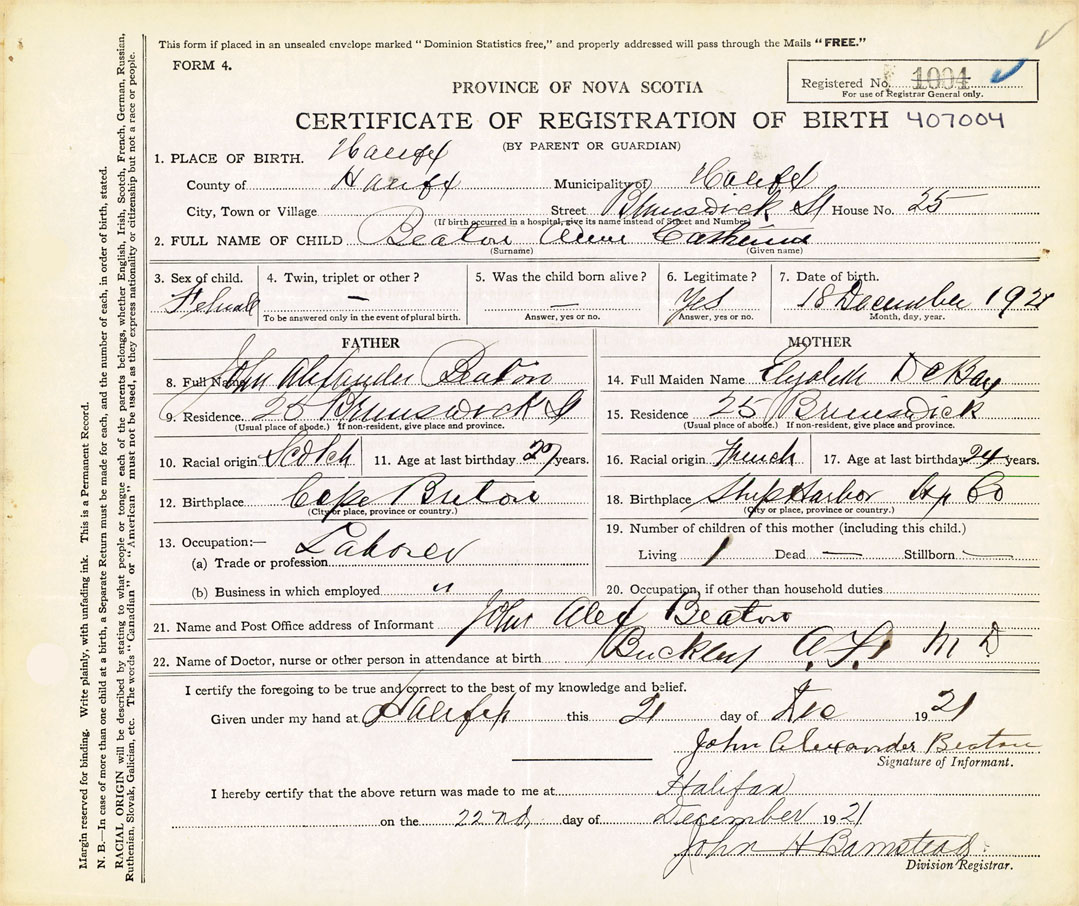 This form if placed in an unsealed envelope marked "Dominion Statistics free," and properly addressed will pass through the Mails "FREE."
FORM 4.
Registered No. 1004
For use of Registrar General only.
PROVINCE OF NOVA SCOTIA
CERTIFICATE OF REGISTRATION OF BIRTH 407004
(BY PARENT OR GUARDIAN)
1. PLACE OF BIRTH. Halifax
County of Halifax Municipality of Halifax
City, Town or Village Street Brunswick St House No. 25
(If birth occurred in a hospital, give its name instead of Street and Number)
2. FULL NAME OF CHILD Beaton Anne Catherine
(Surname) (Given name)
3. Sex of child. 4. Twin, triplet or other? 5. Was the child born alive? 6. Legitimate? 7. Date of birth.
Female — — Yes 18 December 1921
To be answered only in the event of plural birth. Answer, yes or no. Answer, yes or no. Month, day, year.
FATHER
8. Full Name John Alexander Beaton
9. Residence. 25 Brunswick St
(Usual place of abode.) If non-resident, give place and province.
10. Racial origin Scotch 11. Age at last birthday 27 years.
12. Birthplace Cape Breton
(City or place, province or country.)
13. Occupation:—
(a) Trade or profession Laborer
(b) Business in which employed "
MOTHER
14. Full Maiden Name Elizabeth DeBay
15. Residence 25 Brunswick
(Usual place of abode.) If non-resident, give place and province.
16. Racial origin French 17. Age at last birthday 24 years.
18. Birthplace Ship Harbor Hx Co
(City or place, province or country.)
19. Number of children of this mother (including this child.)
Living 1 Dead — Stillborn —
20. Occupation, if other than household duties
21. Name and Post Office address of Informant John Alex Beaton
22. Name of Doctor, nurse or other person in attendance at birth Buckley A. F. M D
I certify the foregoing to be true and correct to the best of my knowledge and belief.
Given under my hand at Halifax this 21 day of Dec 1921
John Alexander Beaton
Signature of Informant.
I hereby certify that the above return was made to me at Halifax
on the 22nd day of December 1921
John H Barnstead
Division Registrar.
Margin reserved for binding. Write plainly, with unfading ink. This is a Permanent Record.
N. B.—In case of more than one child at a birth, a Separate Return must be made for each, and the number of each, in order of birth, stated.
RACIAL ORIGIN will be described by stating to what people or tongue each of the parents belongs, whether English, Irish, Scotch, French, German, Russian,
Ruthenian, Slovak, Galician, etc. The words "Canadian" or "American" must not be used, as they express nationality or citizenship but not a race or people.